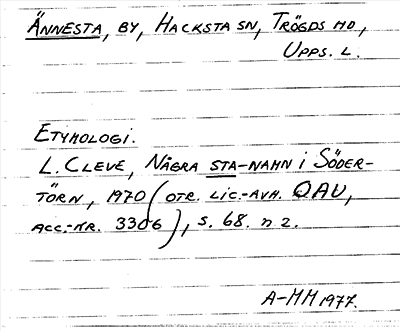 Ännesta, by, Hacksta sn, Trögds hd,
Upps. l.
Etymologi.
L. Cleve, Några sta-namn i Söder-
törn, 1970 (otr. lic.-avh. OAU,
acc.-nr. 3306), s. 68. n 2.
A-MM 1977.